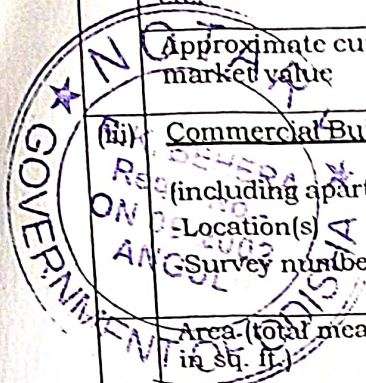 Approximate cu
market value
(iii) Commercial Bu
(including apart
-Location(s)
-Survey numbe
Area (total mea
in sq. ft.)
NOTARY
GOVERNMENT OF ODISHA
BEHERA
ON
ANGUL